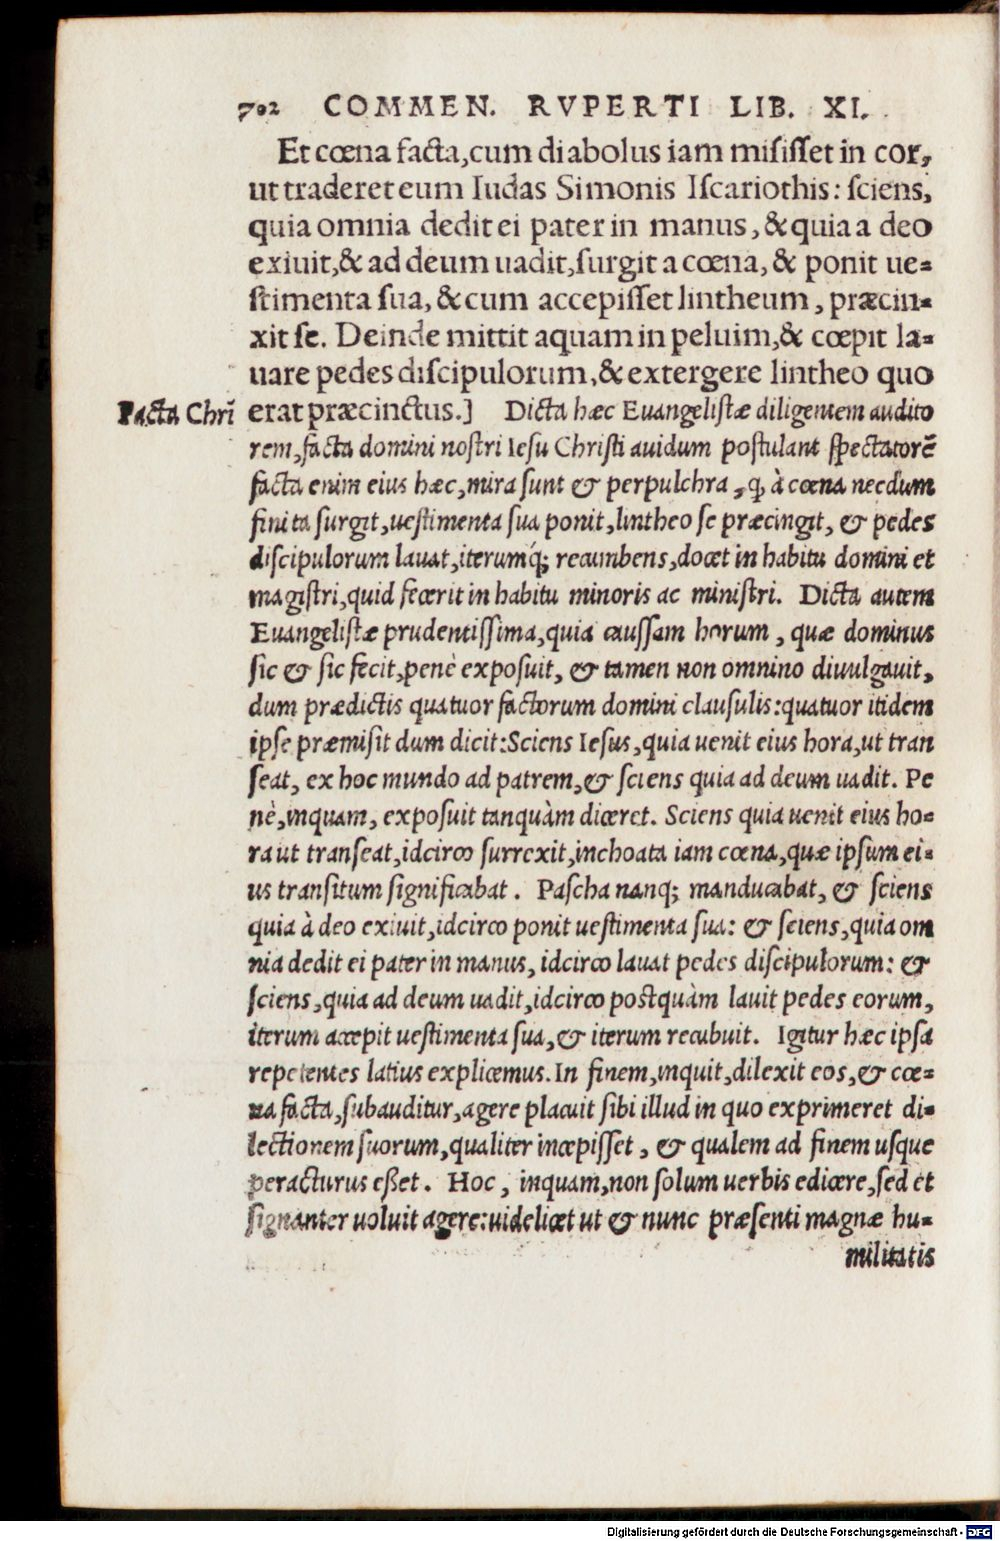 702 COMMEN. RVPERTI LIB. XI.
Et cœna facta, cum diabolus iam misisset in cor,
ut traderet eum Iudas Simonis Iscariothis: sciens,
quia omnia dedit ei pater in manus, & quia a deo
exiuit, & ad deum uadit, surgit a cœna, & ponit ue=
stimenta sua, & cum accepisset lintheum, præcin=
xit se. Deinde mittit aquam in peluim, & cœpit la=
uare pedes discipulorum, & extergere lintheo quo
Facta Chrī
erat præcinctus.] Dicta hæc Euangelistæ diligentem audito
rem, facta domini nostri Iesu Christi auidum postulant spectatorē
facta enim eius hæc, mira sunt & perpulchra, q̧ à cœna necdum
finita surgit, uestimenta sua ponit, lintheo se præcingit, & pedes
discipulorum lauat, iterumq́; recumbens, docet in habitu domini et
magistri, quid fecerit in habitu minoris ac ministri. Dicta autem
Euangelistæ prudentissima, quia caussam horum, quæ dominus
sic & sic fecit, penè exposuit, & tamen non omnino diuulgauit,
dum prædictis quatuor factorum domini clausulis: quatuor itidem
ipse præmisit dum dicit: Sciens Iesus, quia uenit eius hora, ut tran
seat, ex hoc mundo ad patrem, & sciens quia ad deum uadit. Pe
nè, inquam, exposuit tanquàm diceret. Sciens quia uenit eius ho=
ra ut transeat, idcirco surrexit, inchoata iam cœna, quæ ipsum ei=
us transitum significabat. Pascha nanq; manducabat, & sciens
quia à deo exiuit, idcirco ponit uestimenta sua: & sciens, quia om
nia dedit ei pater in manus, idcirco lauat pedes discipulorum: &
sciens, quia ad deum uadit, idcirco postquàm lauit pedes eorum,
iterum accepit uestimenta sua, & iterum recubuit. Igitur hæc ipsa
repetentes latius explicemus. In finem, inquit, dilexit eos, & cœ=
na facta, subauditur, agere placuit sibi illud in quo exprimeret di=
lectionem suorum, qualiter incepisset, & qualem ad finem usque
peracturus esset. Hoc, inquam, non solum uerbis edicere, sed et
signanter uoluit agere: uidelicet ut & nunc præsenti magnæ hu=
militatis
Digitalisierung gefördert durch die Deutsche Forschungsgemeinschaft - DFG